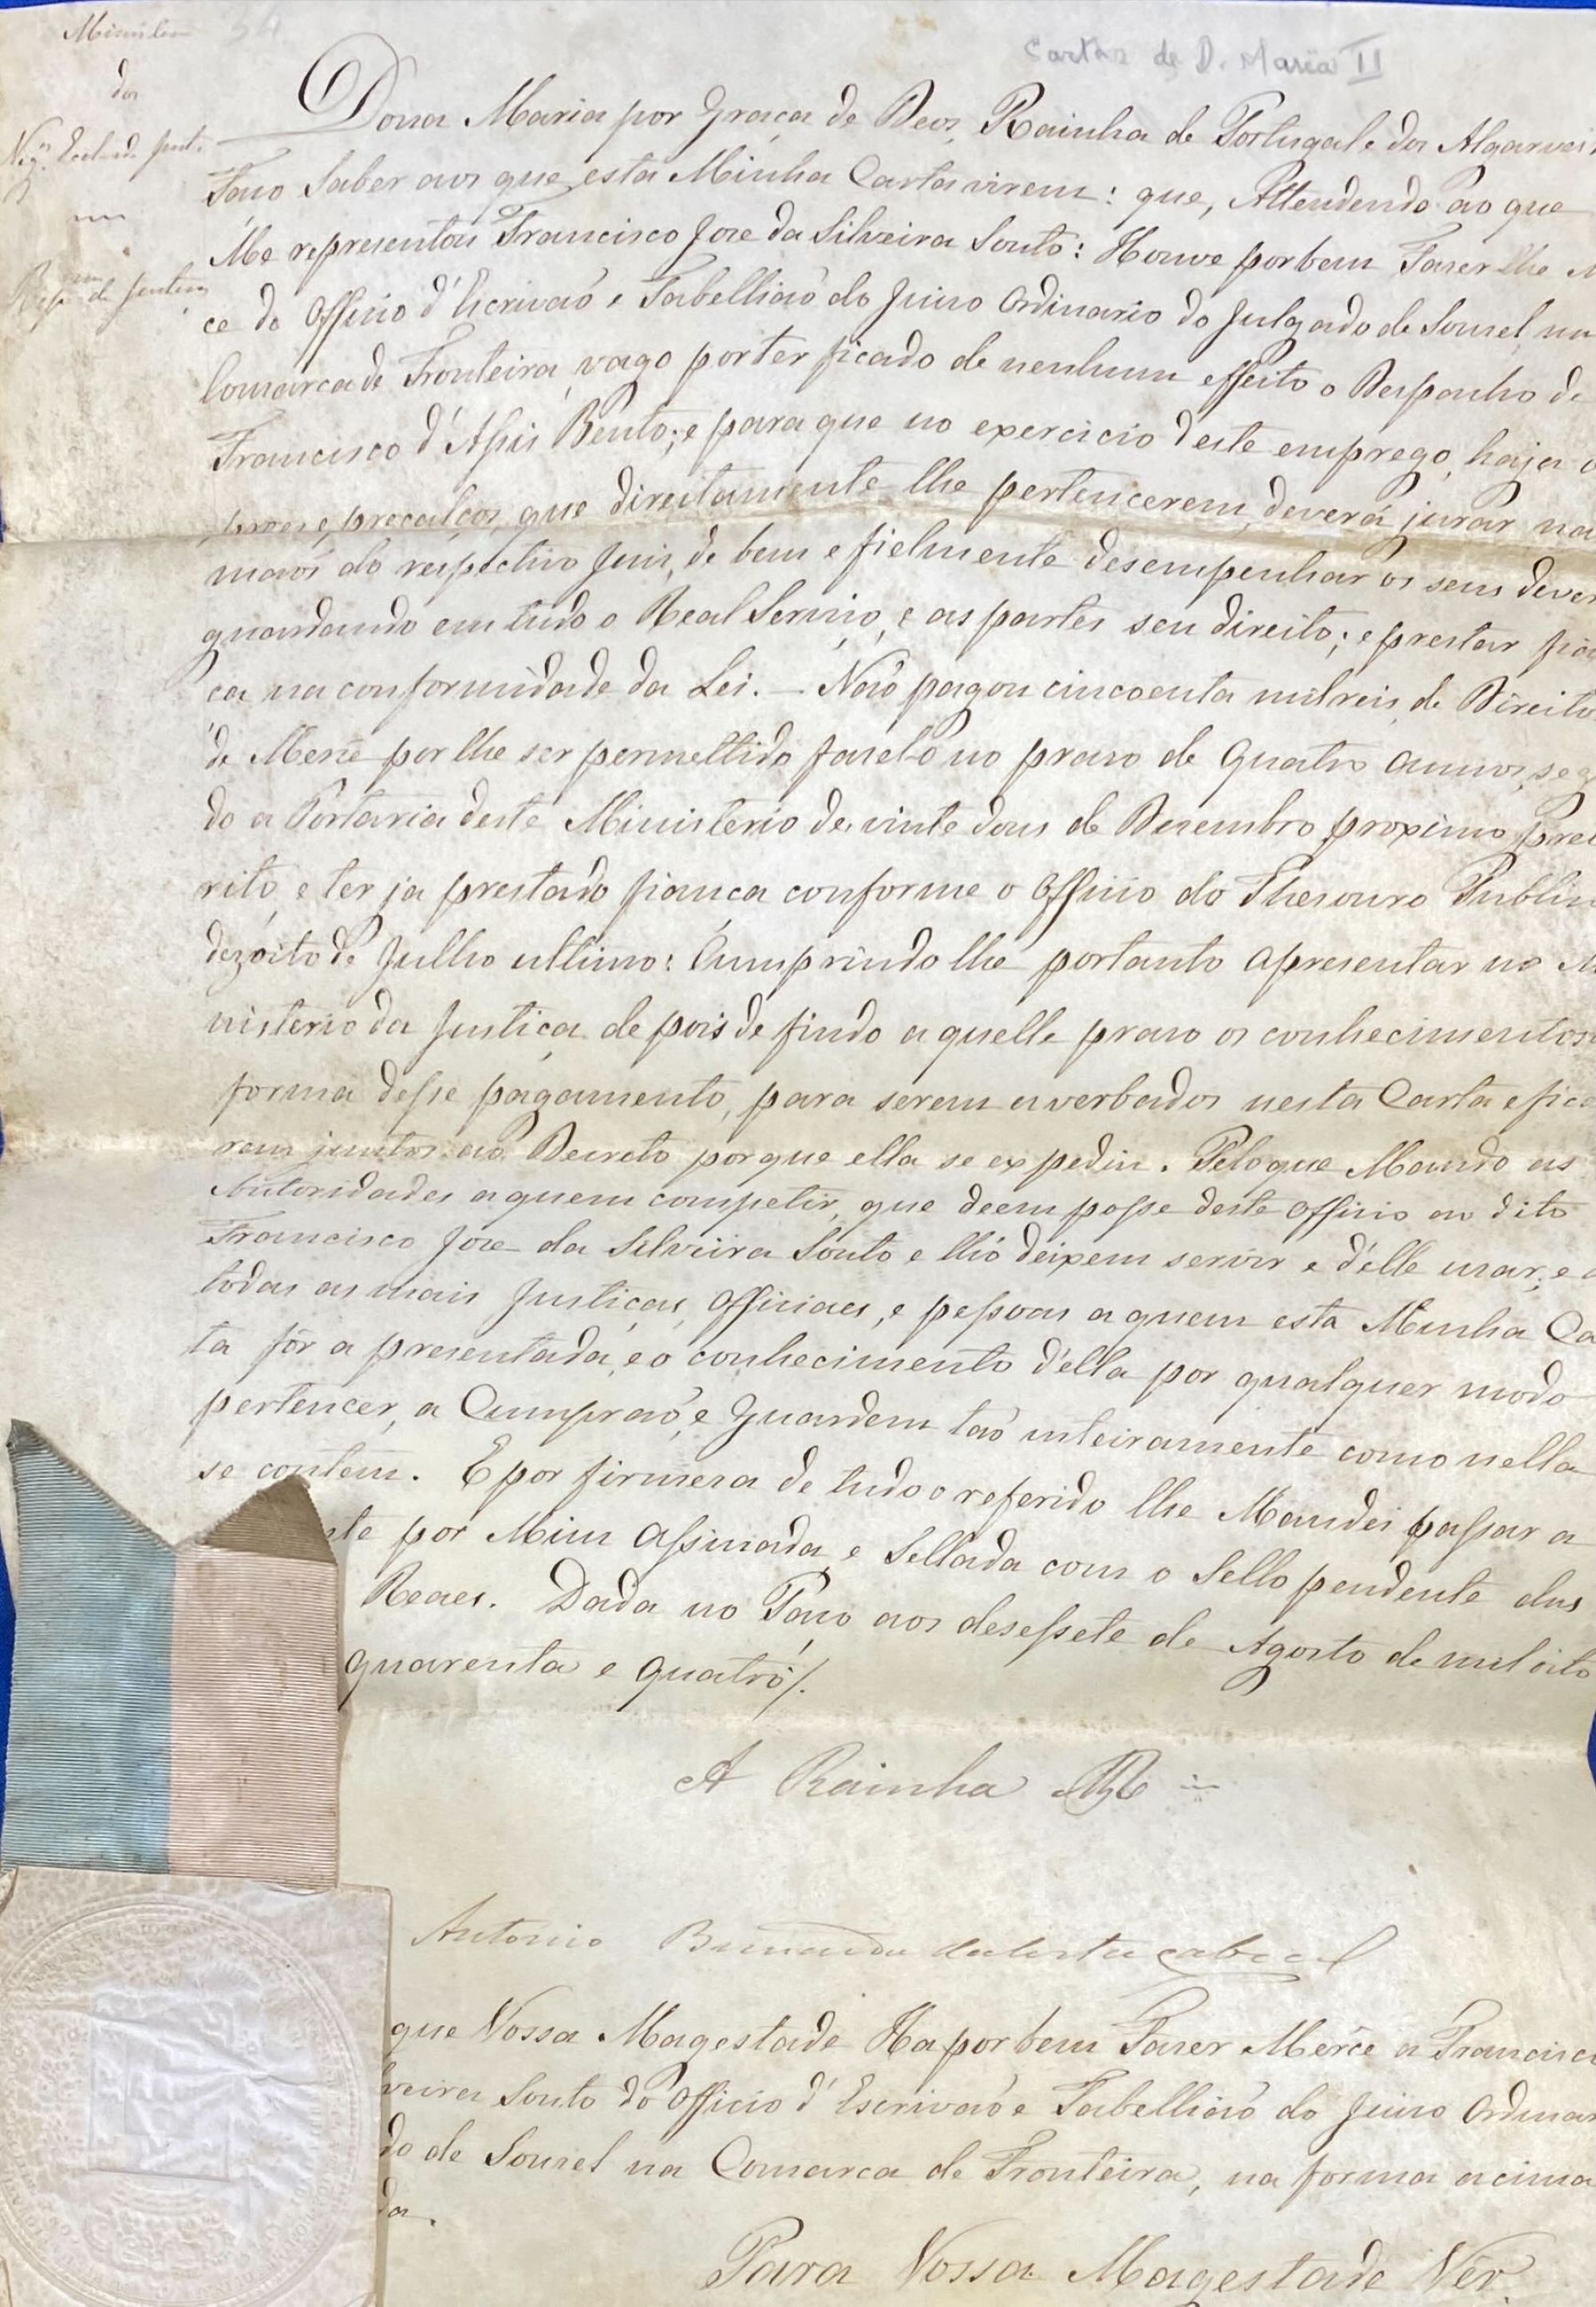 34
Cartas de D. Maria II
Ministerio
dos
Neg.os Eccles. e de Just.
Dona Maria por Graça de Deos, Rainha de Portugal e dos Algarves
Faço Saber aos que esta Minha Carta virem: que, Attendendo ao que
Me representou Francisco Jose da Silveira Souto: Houve por bem Fazer lhe M
ce do Officio d'Escrivaõ e Tabelliaõ do Juizo Ordinario do Julgado de Souzel, na
Comarca de Fronteira, vago por ter ficado de nenhum effeito o Despacho de
Francisco d'Assis Bento; e para que no exercicio deste emprego, haja o
proes, e precalços, que direitamente lhe pertencerem, deverá jurar na
maõs do respectivo Juis, de bem e fielmente desempenhar os seus dever
guardando em tudo o Real Serviço, e as partes seu direito; e prestar fia
ca na conformidade da Lei. - Naõ pagou cincoenta mil reis, de Direito
de Mercê por lhe ser permettido fazelo no praso de quatro annos, seg
do a Portaria deste Ministerio de vinte dous de Dezembro proximo prete
rito, e ter ja prestado fiança conforme o Officio do Thesouro Publico
dezoito de Julho ultimo: Cumprindo lhe portanto apresentar no Mi
nisterio da Justiça, depois de findo aquelle praso os conhecimentos
forma desse pagamento, para serem averbados nesta Carta e fica
rem juntos ao Decreto porque ella se expediu. Pelo que Mando as
Autoridades a quem competir, que deem posse deste Officio ao dito
Francisco Jose da Silveira Souto e lhó deixem servir e d'elle usar; e a
todas as mais Justiças, Officiaes, e pessoas a quem esta Minha Ca
ta fôr apresentada, e o conhecimento d'ella por qualquer modo
pertencer, a Cumpraõ, e Guardem taõ inteiramente como nella
se contem. E por firmeza de tudo o referido lhe Mandei passar a
nte por Mim Assinada, e Sellada com o Sello pendente das
Reaes. Dada no Paço aos desessete de Agosto de mil oito
quarenta e quatro/.
A Rainha
Antonio Bernardo da Costa Cabral
que Vossa Magestade Ha por bem Fazer Mercê a Francisco
veira Souto do Officio d'Escrivaõ e Tabelliaõ do Juizo Ordinar
do de Souzel na Comarca de Fronteira, na forma acima
da.
Para Vossa Magestade Vêr.